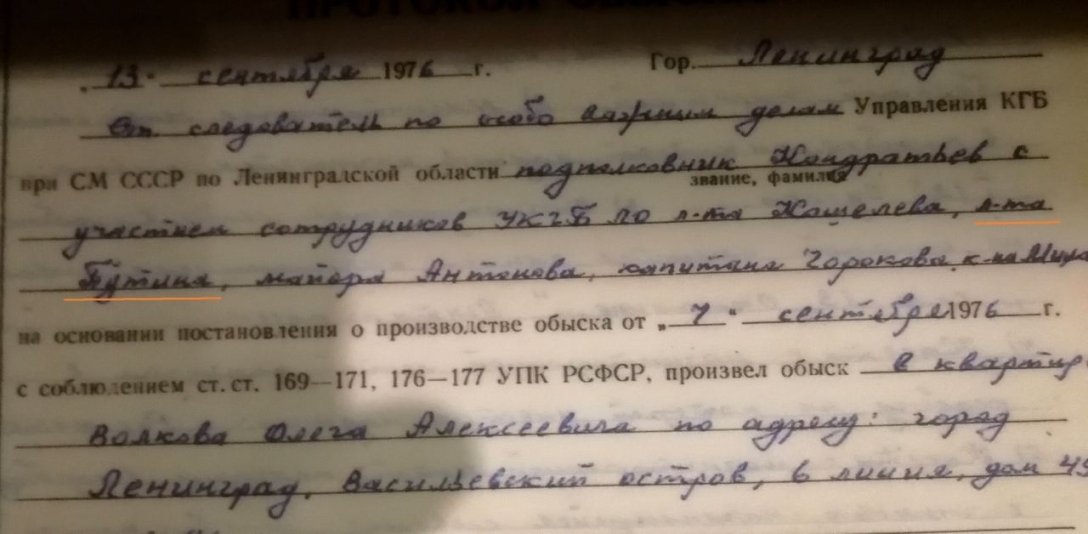 ПРОТОКОЛ ОБЫСКА
„13“ сентября 1976 г. Гор. Ленинград
Ст. следователь по особо важным делам Управления КГБ
при СМ СССР по Ленинградской области подполковник Кондратьев с
звание, фамилия
участием сотрудников УКГБ ЛО л-та Кошелева, л-та
Путина, майора Антонова, капитана Горокова, к-на
на основании постановления о производстве обыска от „7“ сентября 1976 г.
с соблюдением ст. ст. 169—171, 176—177 УПК РСФСР, произвел обыск в квартир
Волкова Олега Алексеевича по адресу: город
Ленинград, Васильевский остров, линия, дом